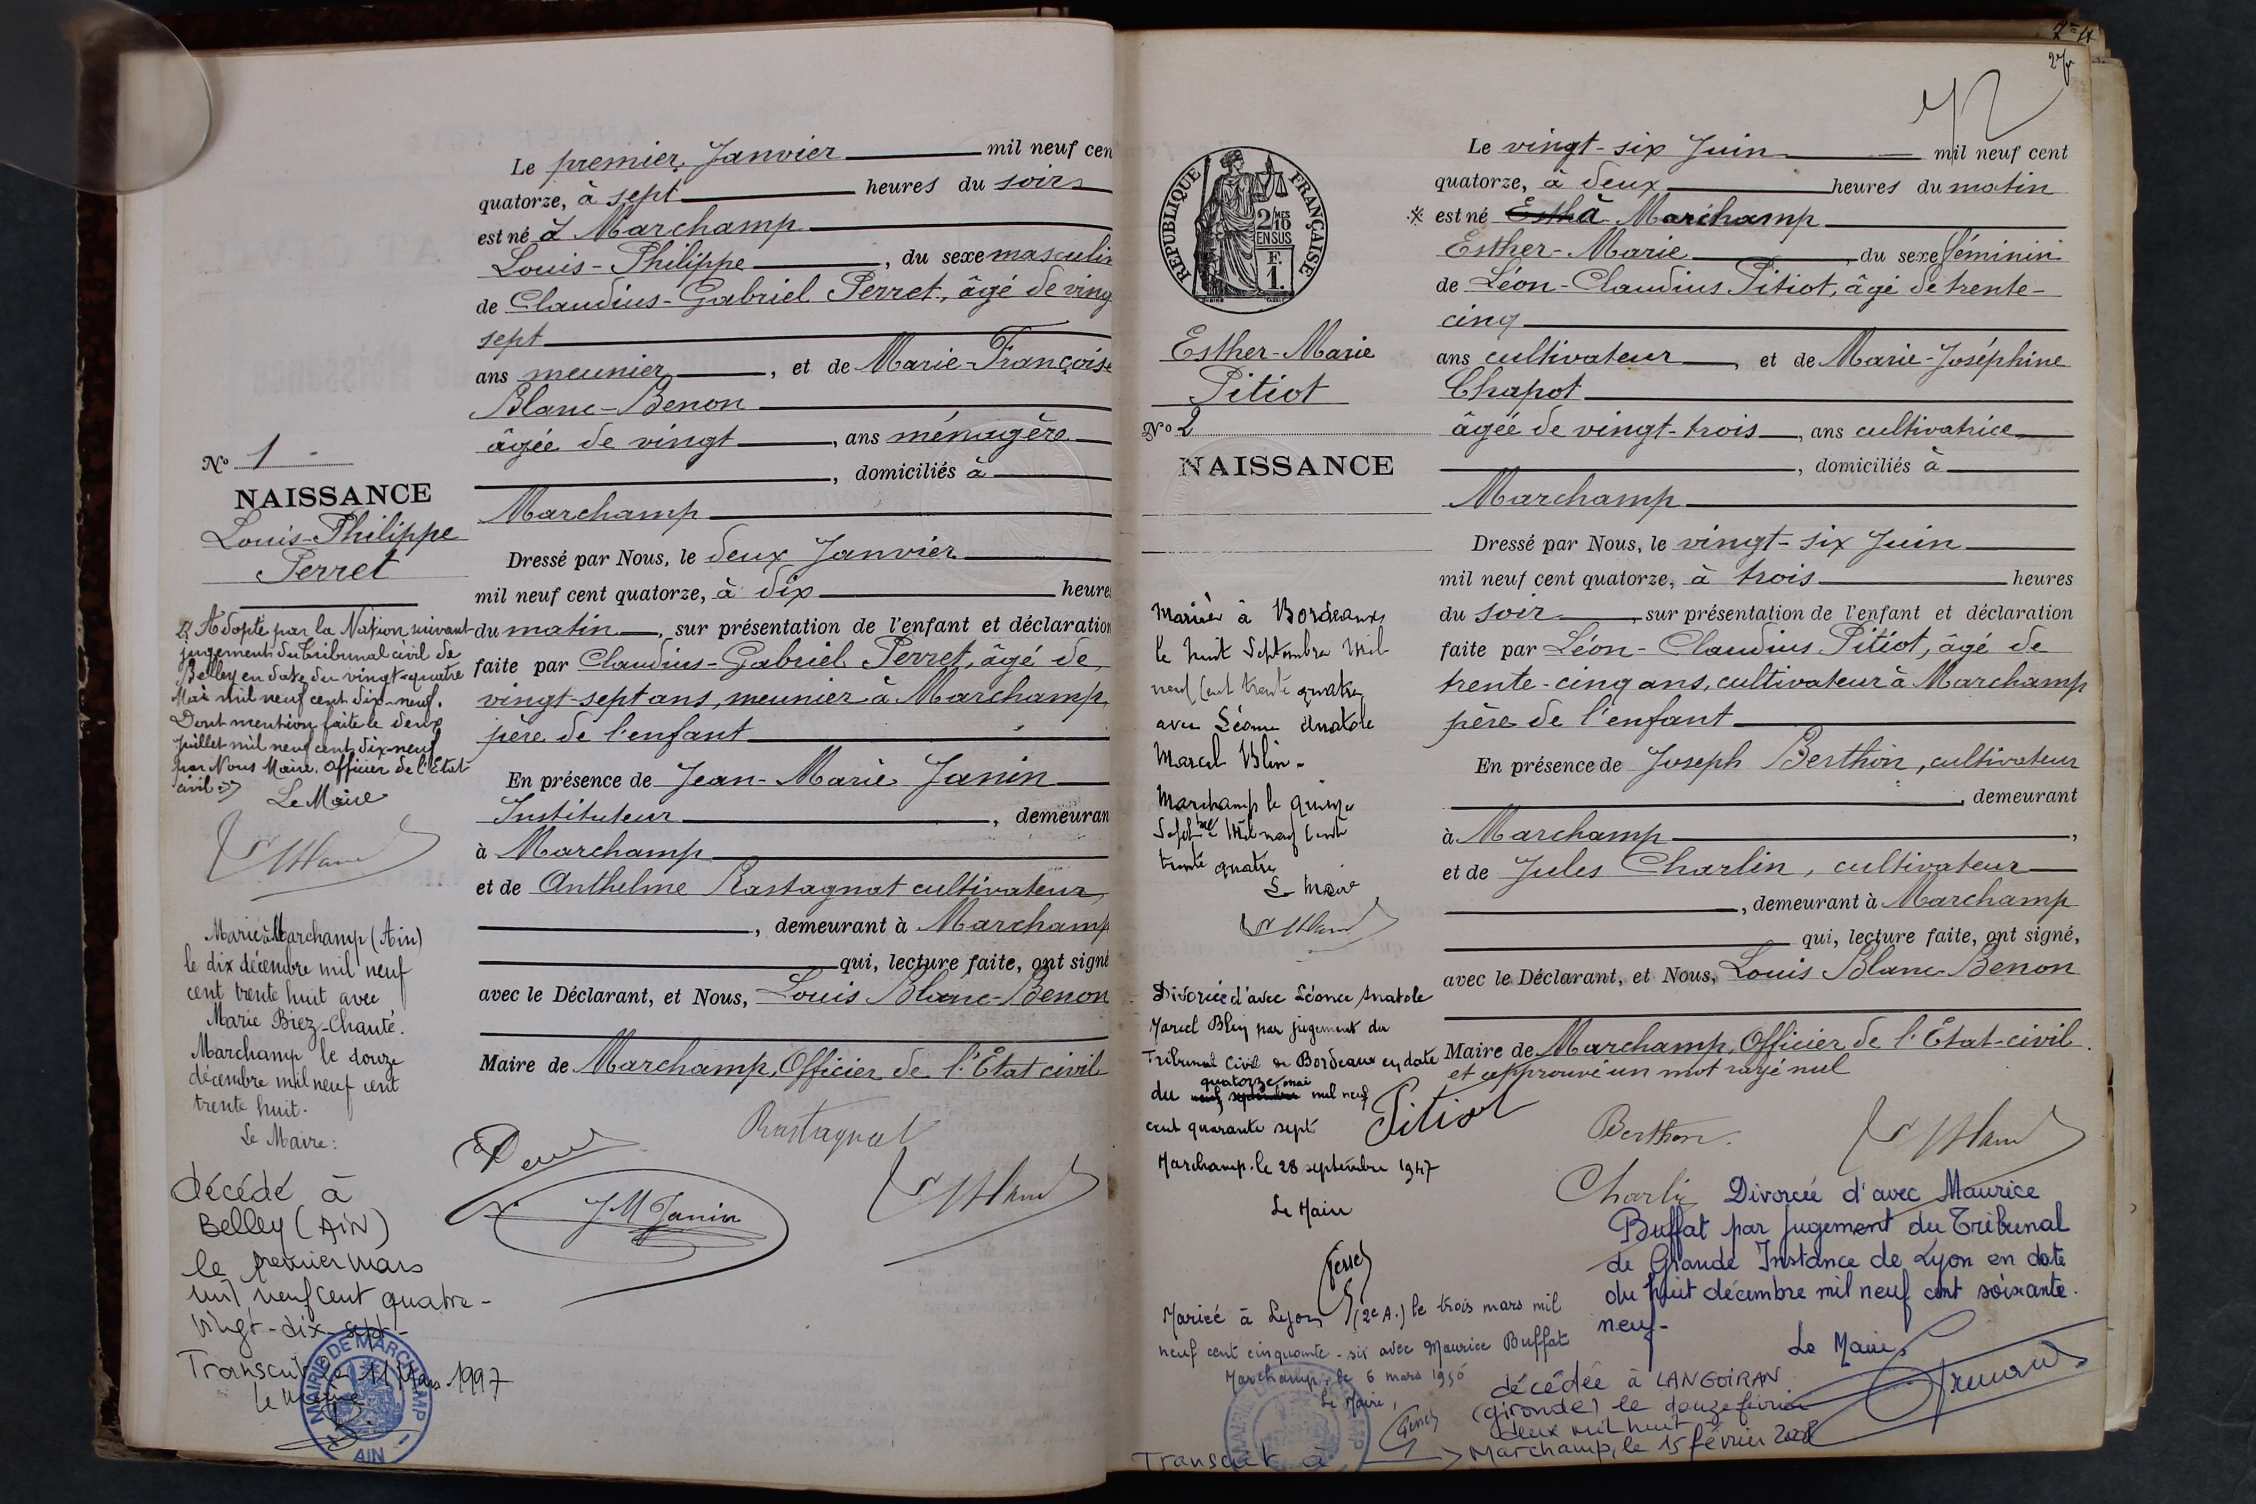 Le premier Janvier mil neuf cen
quatorze, à sept heures du soir
est né à Marchamp
Louis-Philippe, du sexe masculin
de Claudius-Gabriel Perret, âgé de ving
sept
ans meunier, et de Marie-Françoise
Blanc-Benon
âgée de vingt, ans ménagère
, domiciliés à
Marchamp
Dressé par Nous, le deux Janvier
mil neuf cent quatorze, à dix heures
du matin, sur présentation de l'enfant et déclaration
faite par Claudius-Gabriel Perret, âgé de
vingt-sept ans, meunier à Marchamp,
père de l'enfant
En présence de Jean-Marie Janin
Instituteur, demeuran
à Marchamp
et de Anthelme Rastagnat cultivateur,
, demeurant à Marchamp
qui, lecture faite, ont signé
avec le Déclarant, et Nous, Louis Blanc-Benon
Maire de Marchamp, Officier de l'État civil
Rastagnat
Perret
J M Janin
No 1
NAISSANCE
Louis-Philippe
Perret
Adopté par la Nation suivant
jugement du tribunal civil de
Belley en date du vingt-quatre
Mai mil neuf cent dix-neuf.
Dont mention faite le deux
Juillet mil neuf cent dix-neuf
par Nous Maire. Officier de l'Etat
civil
Le Maire
Marié à Marchamp (Ain)
le dix décembre mil neuf
cent trente huit avec
Marie Biez-Chanté.
Marchamp le douze
décembre mil neuf cent
trente huit.
Le Maire:
décédé à
Belley (AIN)
le premier mars
mil neuf cent quatre-
vingt-dix-sept-
Transcrit le 11 Mars 1997
le Maire
MAIRIE DE MARCHAMP
AIN
27
RÉPUBLIQUE FRANÇAISE
2/MES
10
EN SUS
F.
1.
Esther-Marie
Pitiot
No 2
NAISSANCE
Mariée à Bordeaux
le huit Septembre Mil
neuf Cent trente quatre
avec Léonce Anatole
Marcel Blin-
Marchamp le quinze
Septbre Mil neuf Cent
trente quatre
Le Maire
Divorcée d'avec Léonce Anatole
Marcel Blin par jugement du
Tribunal Civil de Bordeaux en date
quatorze mai
du neuf septembre mil neuf
cent quarante sept
Marchamp. le 28 septembre 1947
Le Maire
Perret
Mariée à Lyon (2e A.) le trois mars mil
neuf cent cinquante-six avec Maurice Buffat
Marchamp, le 6 mars 1956
Le Maire,
Perret
Transcrit à
Le vingt-six Juin mil neuf cent
quatorze, à deux heures du matin
est né Esth à Marchamp
Esther-Marie, du sexe féminin
de Léon-Claudius Pitiot, âgé de trente-
cinq
ans cultivateur, et de Marie-Joséphine
Chapot
âgée de vingt-trois, ans cultivatrice
, domiciliés à
Marchamp
Dressé par Nous, le vingt-six Juin
mil neuf cent quatorze, à trois heures
du soir, sur présentation de l'enfant et déclaration
faite par Léon-Claudius Pitiot, âgé de
trente-cinq ans, cultivateur à Marchamp
père de l'enfant
En présence de Joseph Berthon, cultivateur
, demeurant
à Marchamp,
et de Jules Charlin, cultivateur
, demeurant à Marchamp
qui, lecture faite, ont signé,
avec le Déclarant, et Nous, Louis Blanc-Benon
Maire de Marchamp, Officier de l'État-civil.
et approuvé un mot rayé nul
Pitiot
Berthon.
Charlin
Divorcée d'avec Maurice
Buffat par jugement du Tribunal
de Grande Instance de Lyon en date
du huit décembre mil neuf cent soixante.
neuf-
Le Maire,
décédée à LANGOIRAN
(gironde) le douze février
deux mil huit
Marchamp, le 15 février 2008